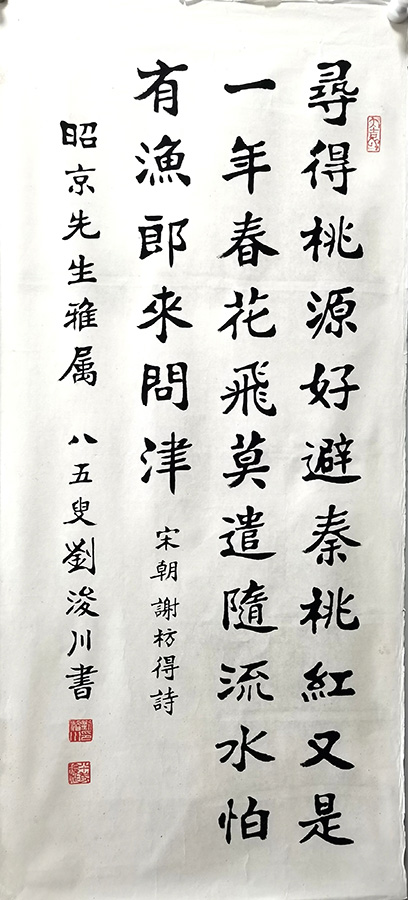 尋得桃源好避秦桃紅又是
一年春花飛莫遣隨流水怕
有漁郎來問津
宋朝謝枋得詩
昭京先生雅属
八五叟劉浚川書